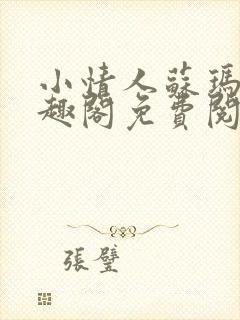 小情人蘇瑪
趣閣免費閱
張璧